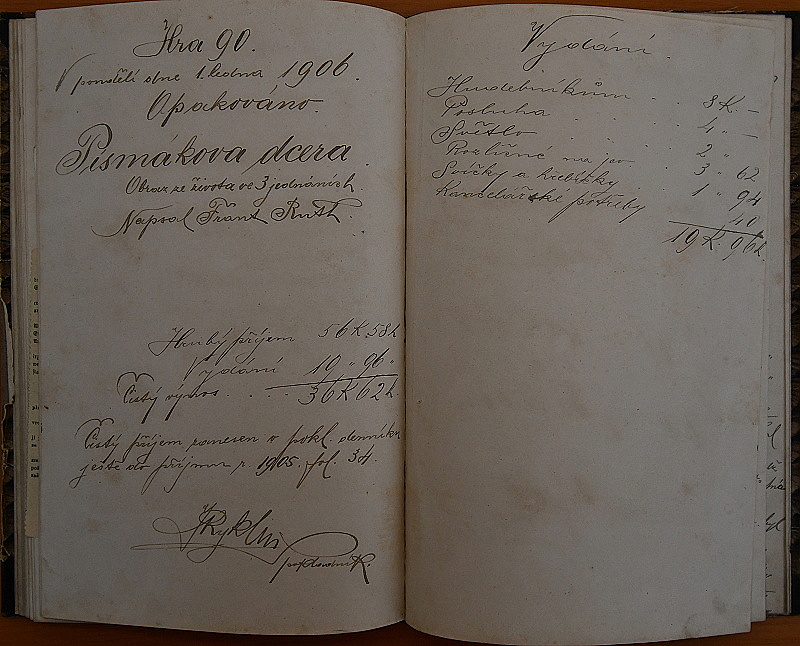 Hra 90.
V pondělí dne 1. ledna 1906.
Opakováno.
Písmákova dcera.
Obraz ze života ve 3 jednáních.
Napsal Frant. Ruth.
Hrubý příjem 56 K 58 h
Vydání 19 " 96 "
Čistý výnos . . . . 36 K 62 h.
Čistý příjem zanesen v pokl. denníku
ještě do příjmu r. 1905, fol. 34.
pokladník.
Vydání.
Hudebníkům . . . 8 K. –
Posluha . . . 4 " –
Světlo . . . 2 " –
Rozličné 3 " 62
Svíčky a . . 1 " 94
Kancelářské potřeby 40
19 K. 96 h.